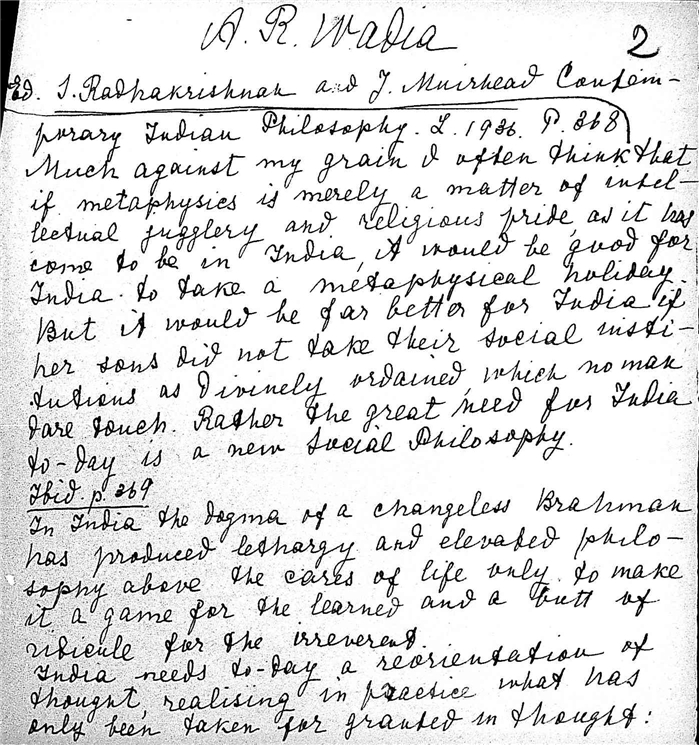 A. R. Wadia
2
Ed. S. Radhakrishnan and J. Muirhead Contem-
porary Indian Philosophy. L. 1936. P. 368
Much against my grain I often think that
if metaphysics is merely a matter of intel-
lectual jugglery and religious pride, as it has
come to be in India, it would be good for
India to take a metaphysical holiday.
But it would be far better for India if
her sons did not take their social insti-
tutions as divinely ordained, which no man
dare touch. Rather the great need for India
to-day is a new Social Philosophy.
Ibid. p. 369
In India the dogma of a changeless Brahman
has produced lethargy and elevated philo-
sophy above the cares of life only to make
it a game for the learned and a butt of
ridicule for the irreverent.
India needs to-day a reorientation of
thought, realising in practice what has
only been taken for granted in thought: